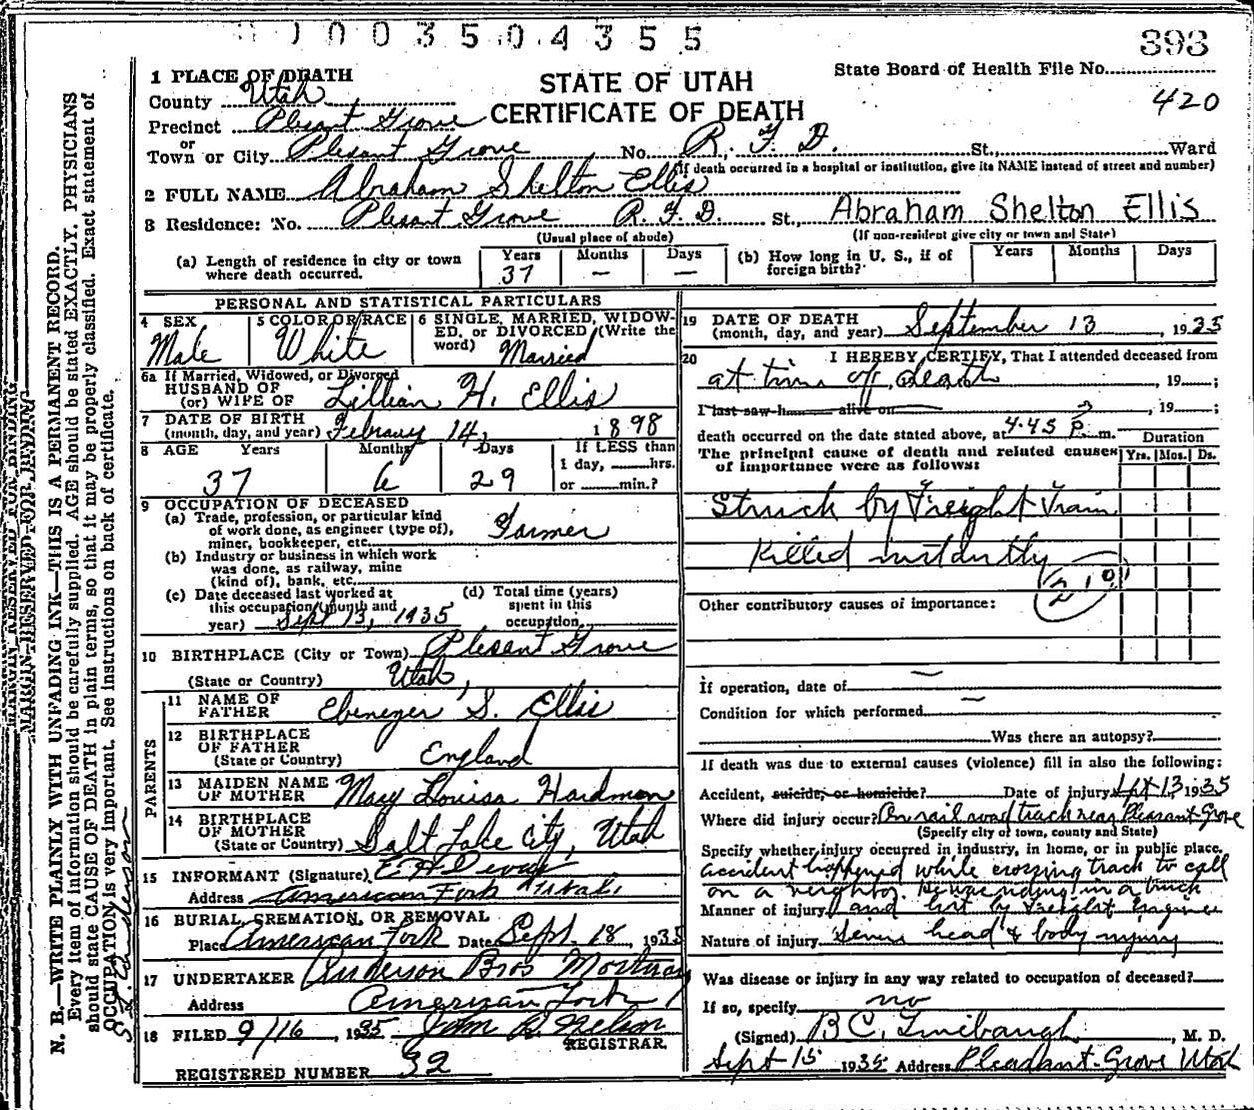 1 0 0 3 5 0 4 3 5 5
393
State Board of Health File No.
420
STATE OF UTAH
CERTIFICATE OF DEATH
1 PLACE OF DEATH
County Utah
Precinct Plesant Grove
or
Town or City Plesant Grove No. R. F. D. St., Ward
(If death occurred in a hospital or institution, give its NAME instead of street and number)
2 FULL NAME Abraham Shelton Ellis
3 Residence: No. Plesant Grove R. F. D. St., Abraham Shelton Ellis
(Usual place of abode) (If non-resident give city or town and State)
(a) Length of residence in city or town where death occurred. Years 37 Months — Days —
(b) How long in U. S., if of foreign birth? Years Months Days
PERSONAL AND STATISTICAL PARTICULARS
4 SEX
Male
5 COLOR OR RACE
White
6 SINGLE, MARRIED, WIDOWED, or DIVORCED (Write the word) Married
6a If Married, Widowed, or Divorced
HUSBAND OF
(or) WIFE OF Lillian H. Ellis
7 DATE OF BIRTH
(month, day, and year) Febrauy 14, 1898
8 AGE Years Months Days If LESS than
1 day, hrs.
or min.?
37 6 29
9 OCCUPATION OF DECEASED
(a) Trade, profession, or particular kind
of work done, as engineer (type of),
miner, bookkeeper, etc. Farmer
(b) Industry or business in which work
was done, as railway, mine
(kind of), bank, etc.
(c) Date deceased last worked at
this occupation (month and
year) Sept 13, 1935
(d) Total time (years)
spent in this
occupation
10 BIRTHPLACE (City or Town) Plesant Grove
(State or Country) Utah,
PARENTS
11 NAME OF
FATHER Ebenezer S. Ellis
12 BIRTHPLACE
OF FATHER
(State or Country) England
13 MAIDEN NAME
OF MOTHER Mary Louisa Hardman
14 BIRTHPLACE
OF MOTHER
(State or Country) Salt Lake City, Utah
15 INFORMANT (Signature)
Address American Fork Utah.
16 BURIAL, CREMATION, OR REMOVAL
Place American Fork Date Sept. 18, 1935
17 UNDERTAKER Anderson Bros Mortuary
Address American Fork
18 FILED 9/16, 1935 John R. Nelson
REGISTRAR.
REGISTERED NUMBER 32
19 DATE OF DEATH
(month, day, and year) September 13, 1935
20 I HEREBY CERTIFY, That I attended deceased from
at time of death, 19 ;
I last saw h alive on , 19 ;
death occurred on the date stated above, at 4.45 P. m.
The principal cause of death and related causes
of importance were as follows:
Duration
Yrs. Mos. Ds.
Struck by Freight Train
Killed
210
Other contributory causes of importance:
If operation, date of —
Condition for which performed —
Was there an autopsy?
If death was due to external causes (violence) fill in also the following:
Accident, suicide, or homicide? Date of injury Sept 13, 1935
Where did injury occur? On rail road track near Pleasant Grove
(Specify city or town, county and State)
Specify whether injury occurred in industry, in home, or in public place.
accident happened while crossing track to call
on a neighbor he was riding in a truck
Manner of injury and hit by Freight Engine
Nature of injury Severe head & body injury
Was disease or injury in any way related to occupation of deceased?
If so, specify no
(Signed) B C, M. D.
Sept 15 1935 Address Pleasant Grove Utah
MARGIN RESERVED FOR BINDING
N. B.—WRITE PLAINLY WITH UNFADING INK—THIS IS A PERMANENT RECORD.
Every item of information should be carefully supplied. AGE should be stated EXACTLY. PHYSICIANS
should state CAUSE OF DEATH in plain terms, so that it may be properly classified. Exact statement of
OCCUPATION is very important. See instructions on back of certificate.